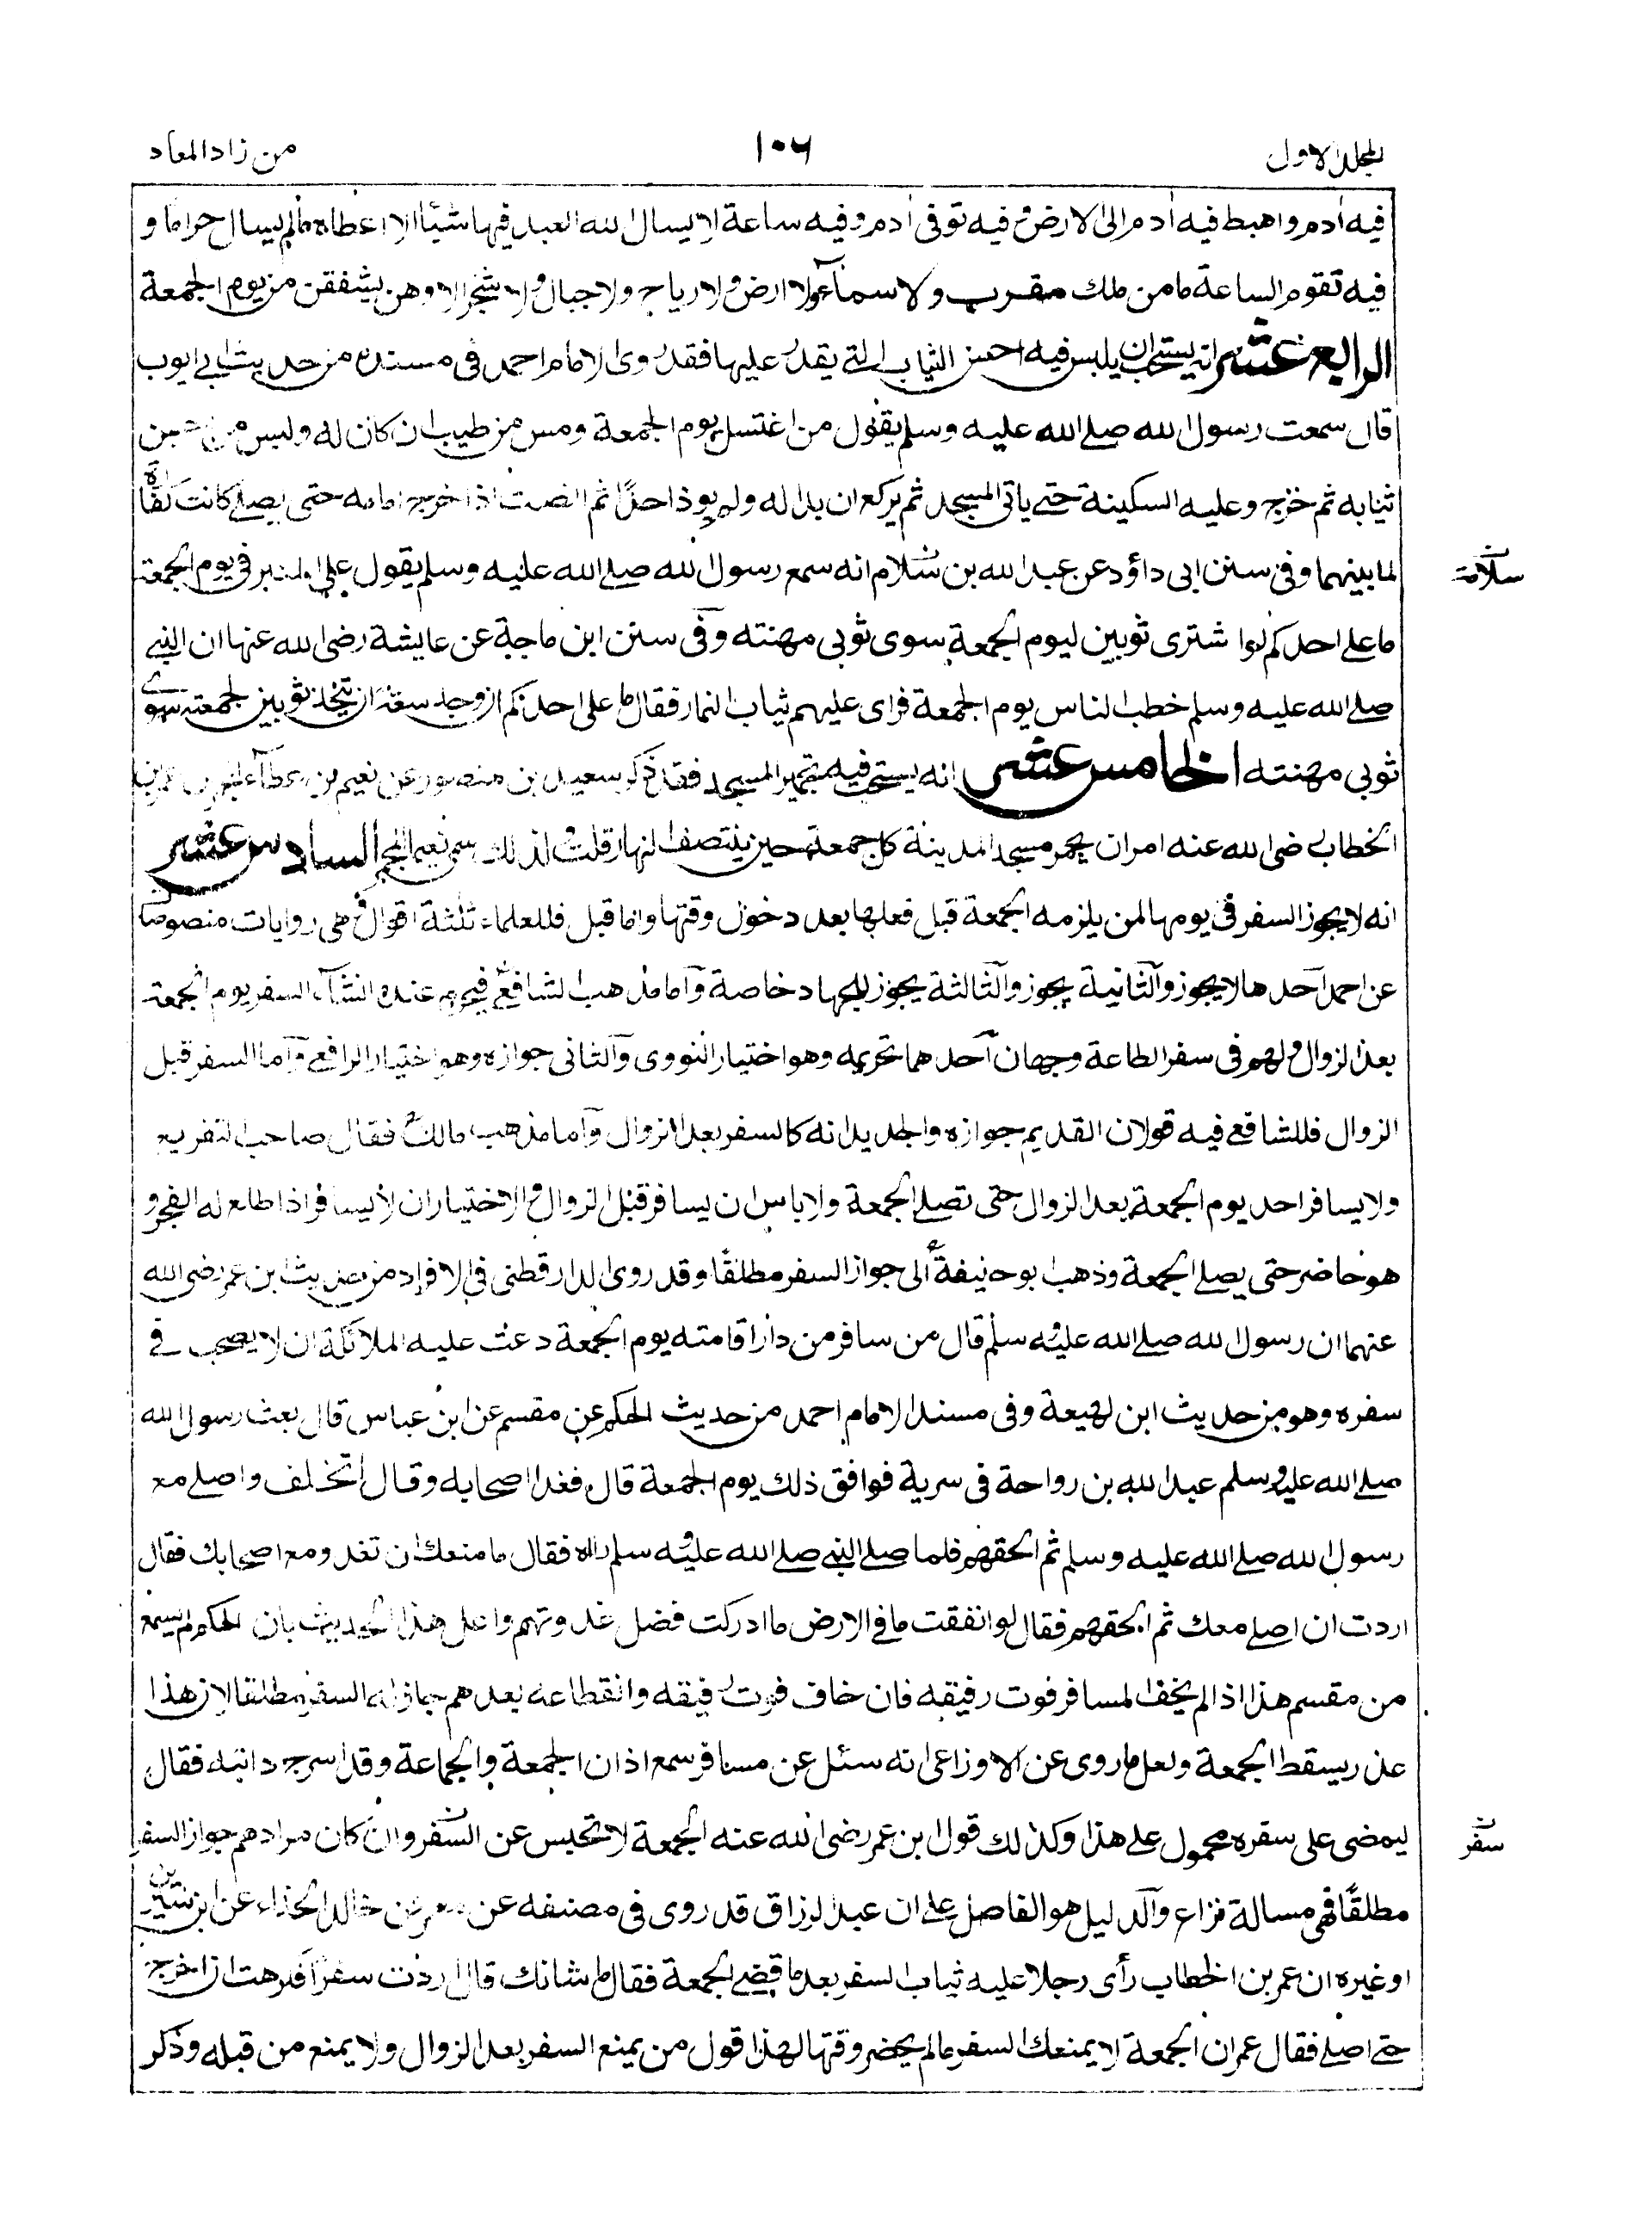 المجلد الاول
١٠٦
من زاد المعاد
فيه أدم واهبط فيه أدم الى الارض وفيه توفى أدم وفيه ساعة لا يسال الله العبد فيها شيئا الا اعطاه مالم يسال حراما و
فيه تقوم الساعة ما من ملك مقرب ولا سماء ولا ارض ولا رياح ولا جبال ولا شجر الا وهن يشفقن من يوم الجمعة
الرابع عشر انه يستحب ان يلبس فيه احسن الثياب التي يقدر عليها فقد روى الامام احمد فى مسنده من حديث ابي ايوب
قال سمعت رسول الله صلے الله عليه وسلم يقول من اغتسل يوم الجمعة ومس من طيب ان كان له ولبس من احسن
ثيابه ثم خرج وعليه السكينة حتے ياتى المسجد ثم يركع ان بدا له ولم يوذ احدًا ثم انصت اذا خرج امامه حتى يصلے كانت كفارة
لما بينهما وفى سنن ابى داؤد عن عبد الله بن سلام انه سمع رسول الله صلے الله عليه وسلم يقول على المنبر فى يوم الجمعة
سلامة
ما على احدكم لوا شترى ثوبين ليوم الجمعة سوى ثوبى مهنته وفى سنن ابن ماجة عن عايشة رضى الله عنها ان النبے
صلے الله عليه وسلم خطب الناس يوم الجمعة فراى عليهم ثياب النمار فقال ما على احدكم ان وجد سعة ان يتخذ ثوبين لجمعته سوے
ثوبى مهنته الخامس عشر انه يستحب فيه تجمير المسجد فقد ذكر سعيد بن منصور عن نعيم بن عمر بن
الخطاب رضى الله عنه امر ان يجمر مسجد المدينة كل جمعة حين ينتصف النهار قلت لذلك سمى نعيم المجمر السادس عشر
انه لا يجوز السفر فى يومها لمن يلزمه الجمعة قبل فعلها بعد دخول وقتها واما قبل فللعلماء ثلثة اقوال وهى روايات منصوصات
عن احمد احدها لا يجوز والثانية يجوز والثالثة يجوز للجهاد خاصة واما مذهب الشافعي فيحرم عنده انشاء السفر يوم الجمعة
بعد الزوال ولهم فى سفر الطاعة وجهان احدهما تحريمه وهو اختيار النووى والثانى جوازه وهو اختيار الرافعے واما السفر قبل
الزوال فللشافعے فيه قولان القديم جوازه والجديد انه كالسفر بعد الزوال واما مذهب مالك فقال صاحب التفريع
ولا يسافر احد يوم الجمعة بعد الزوال حتى تصلے الجمعة ولا باس ان يسافر قبل الزوال والاختيار ان لا يسافر اذا طلع له الفجر و
هو حاضر حتى يصلے الجمعة وذهب ابو حنيفة الى جواز السفر مطلقًا وقد روى الدارقطنى فى الافراد من حديث ابن عمر رضى الله
عنهما ان رسول الله صلے الله عليه وسلم قال من سافر من دار اقامته يوم الجمعة دعت عليه الملائكة ان لا يصحب فے
سفره وهو من حديث ابن لهيعة وفى مسند الامام احمد من حديث الحكم عن مقسم عن ابن عباس قال بعث رسول الله
صلے الله عليه وسلم عبد الله بن رواحة فى سرية فوافق ذلك يوم الجمعة قال فغدا اصحابه وقال اتخلف واصلے مع
رسول الله صلے الله عليه وسلم ثم الحقهم فلما صلے النبے صلے الله عليه وسلم راه فقال ما منعك ان تغدو مع اصحابك فقال
اردت ان اصلے معك ثم الحقهم فقال لو انفقت ما فى الارض ما ادركت فضل غدوتهم واعل هذا الحديث بان الحكم لم يسمع
من مقسم هذا اذا لم يخف المسافر فوت رفيقه فان خاف فوت رفيقه وانقطاعه بعدهم جاز له السفر مطلقا لان هذا
عذر يسقط الجمعة ولعل ما روى عن الاوزاعى انه سئل عن مسافر سمع اذان الجمعة والجماعة وقد اسرج دابته فقال
ليمضى على سفره محمول علے هذا وكذلك قول ابن عمر رضى الله عنه الجمعة لا تحبس عن السفر وان كان مرادهم جواز السفر
سفر
مطلقًا فهى مسالة نزاع والدليل هو الفاصل علے ان عبد الرزاق قد روى فى مصنفه عن معمر عن خالد الحذاء عن ابن سيرين
او غيره ان عمر بن الخطاب رأى رجلا عليه ثياب السفر بعد ما قضے الجمعة فقال ما شانك قال اردت سفرا فكرهت ان اخرج
حتے اصلے فقال عمر ان الجمعة لا يمنعك السفر مالم يحضر وقتها لهذا قول من يمنع السفر بعد الزوال ولا يمنع من قبله وذكر